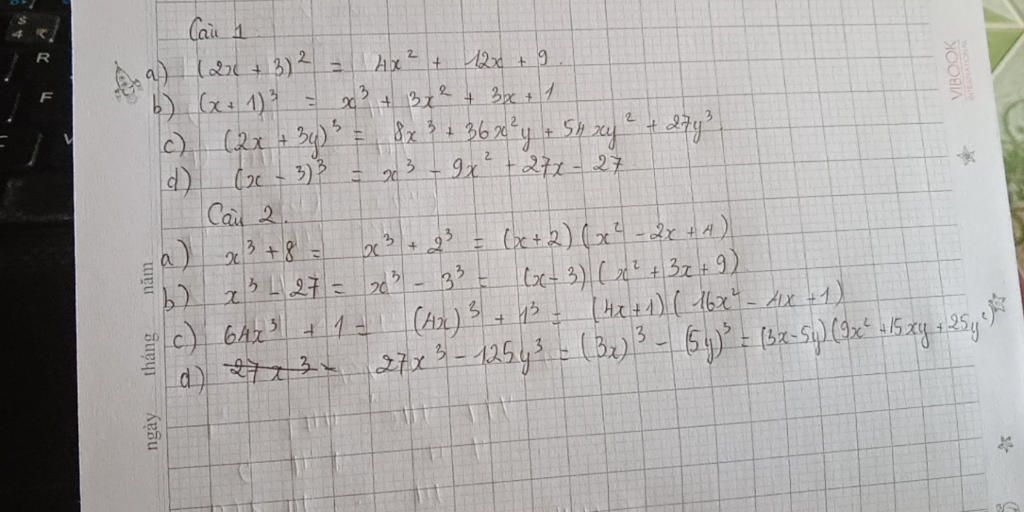 Câu 1
a) (2x + 3)² = 4x² + 12x + 9.
b) (x + 1)³ = x³ + 3x² + 3x + 1
c) (2x + 3y)³ = 8x³ + 36x²y + 54xy² + 27y³
d) (x - 3)³ = x³ - 9x² + 27x - 27
Câu 2.
a) x³ + 8 = x³ + 2³ = (x+2)(x² - 2x + 4)
b) x³ - 27 = x³ - 3³ = (x - 3)(x² + 3x + 9)
c) 64x³ + 1 = (4x)³ + 1³ = (4x+1)(16x² - 4x + 1)
d) 27x³ - 27x³ - 125y³ = (3x)³ - (5y)³ = (3x-5y)(9x² + 15xy + 25y²)
ngày tháng năm
VIBOOK
INTERNATIONAL
S
4
R
F
V